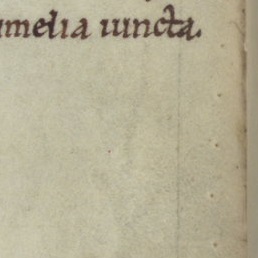 umelia iuncta.